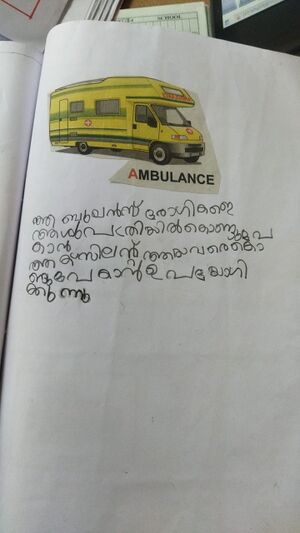 SCHOOL
AMBULANCE
ആബുലൻസ് രോഗികളെ
ആശുപത്രിയിൽകൊണ്ടുപോ
കാൻ
ആയവരെകൊ
ണ്ടുപോകാൻ ഉപയോഗി
ക്കുന്നു